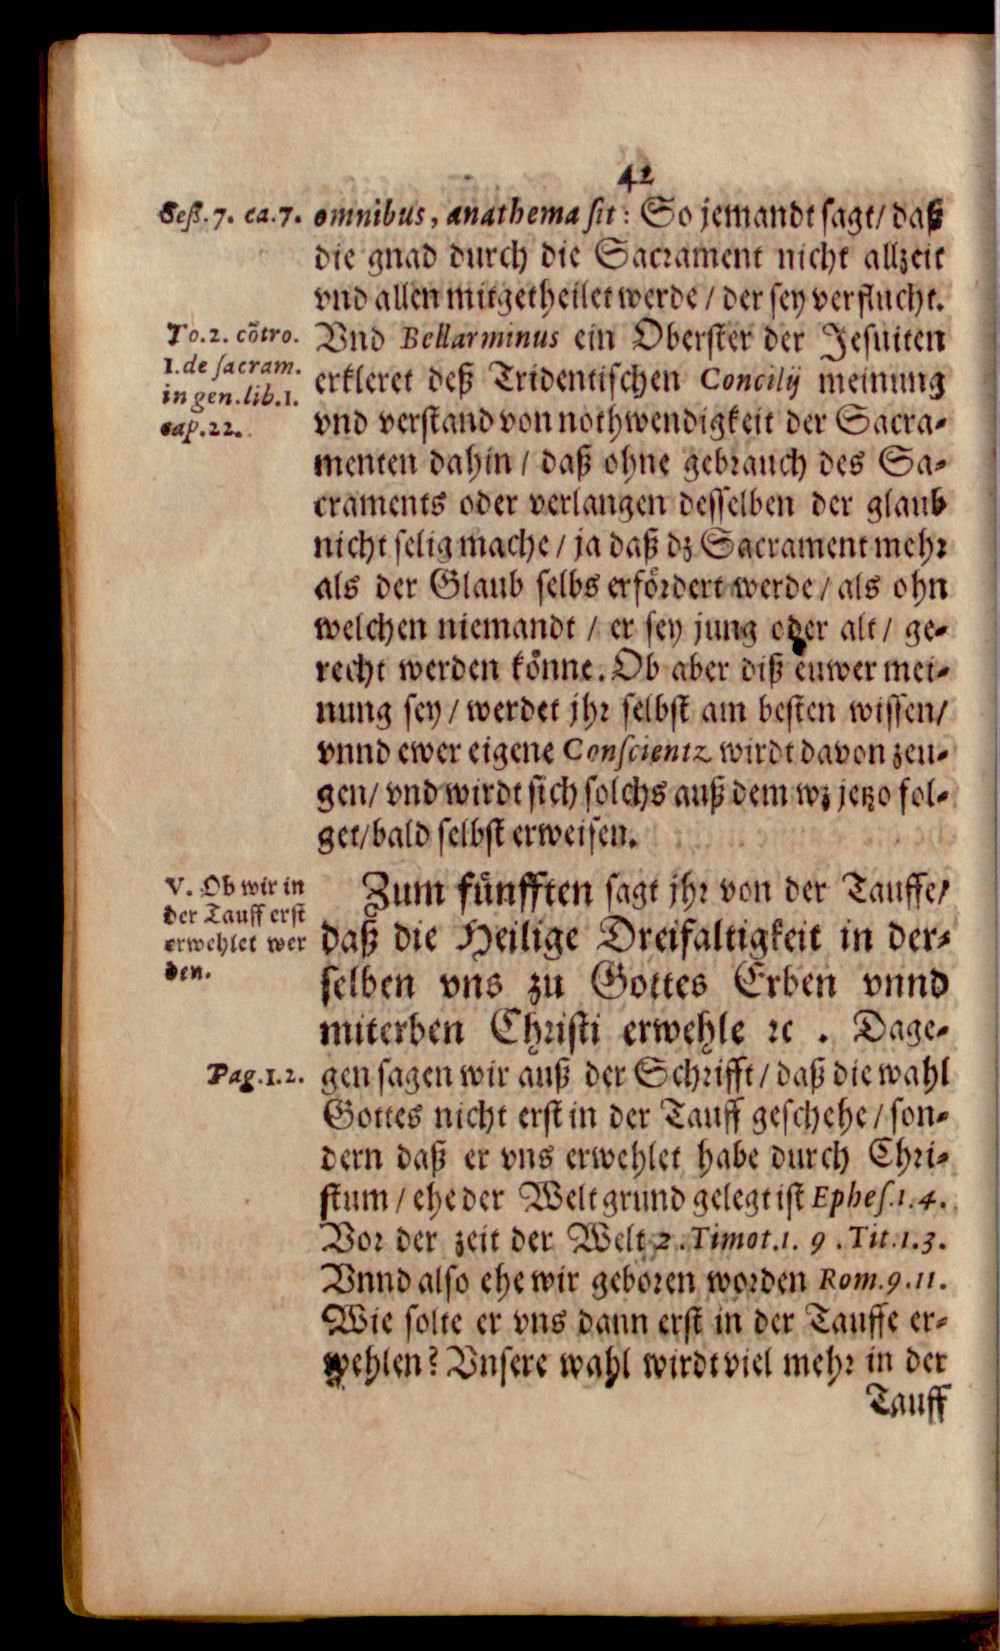 42
Seß.7. ca.7.
omnibus, anathema sit: So jemandt sagt/ daß
die gnad durch die Sacrament nicht allzeit
vnd allen mitgetheilet werde / der sey verflucht.
To.2. cõtro.
1.de sacram.
in gen.lib.1.
cap.22.
Vnd Bellarminus ein Oberster der Jesuiten
erkleret deß Tridentischen Concilij meinung
vnd verstand von nothwendigkeit der Sacra-
menten dahin / daß ohne gebrauch des Sa-
craments oder verlangen desselben der glaub
nicht selig mache / ja daß dz Sacrament mehr
als der Glaub selbs erfördert werde / als ohn
welchen niemandt / er sey jung oder alt / ge-
recht werden könne. Ob aber diß euwer mei-
nung sey / werdet jhr selbst am besten wissen/
vnnd ewer eigene Conscientz wirdt davon zeu-
gen/ vnd wirdt sich solchs auß dem wz jetzo fol-
get/ bald selbst erweisen.
V. Ob wir in
der Tauff erst
erwehlet wer
den.
Zum fünfften sagt jhr von der Tauffe/
daß die Heilige Dreifaltigkeit in der-
selben vns zu Gottes Erben vnnd
miterben Christi erwehle ꝛc . Dage-
Pag.1.2.
gen sagen wir auß der Schrifft / daß die wahl
Gottes nicht erst in der Tauff geschehe / son-
dern daß er vns erwehlet habe durch Chri-
stum / ehe der Welt grund gelegt ist Ephes.1.4.
Vor der zeit der Welt 2.Timot.1. 9 . Tit.1.3.
Vnnd also ehe wir geboren worden Rom.9.11.
Wie solte er vns dann erst in der Tauffe er-
wehlen? Vnsere wahl wirdt viel mehr in der
Tauff